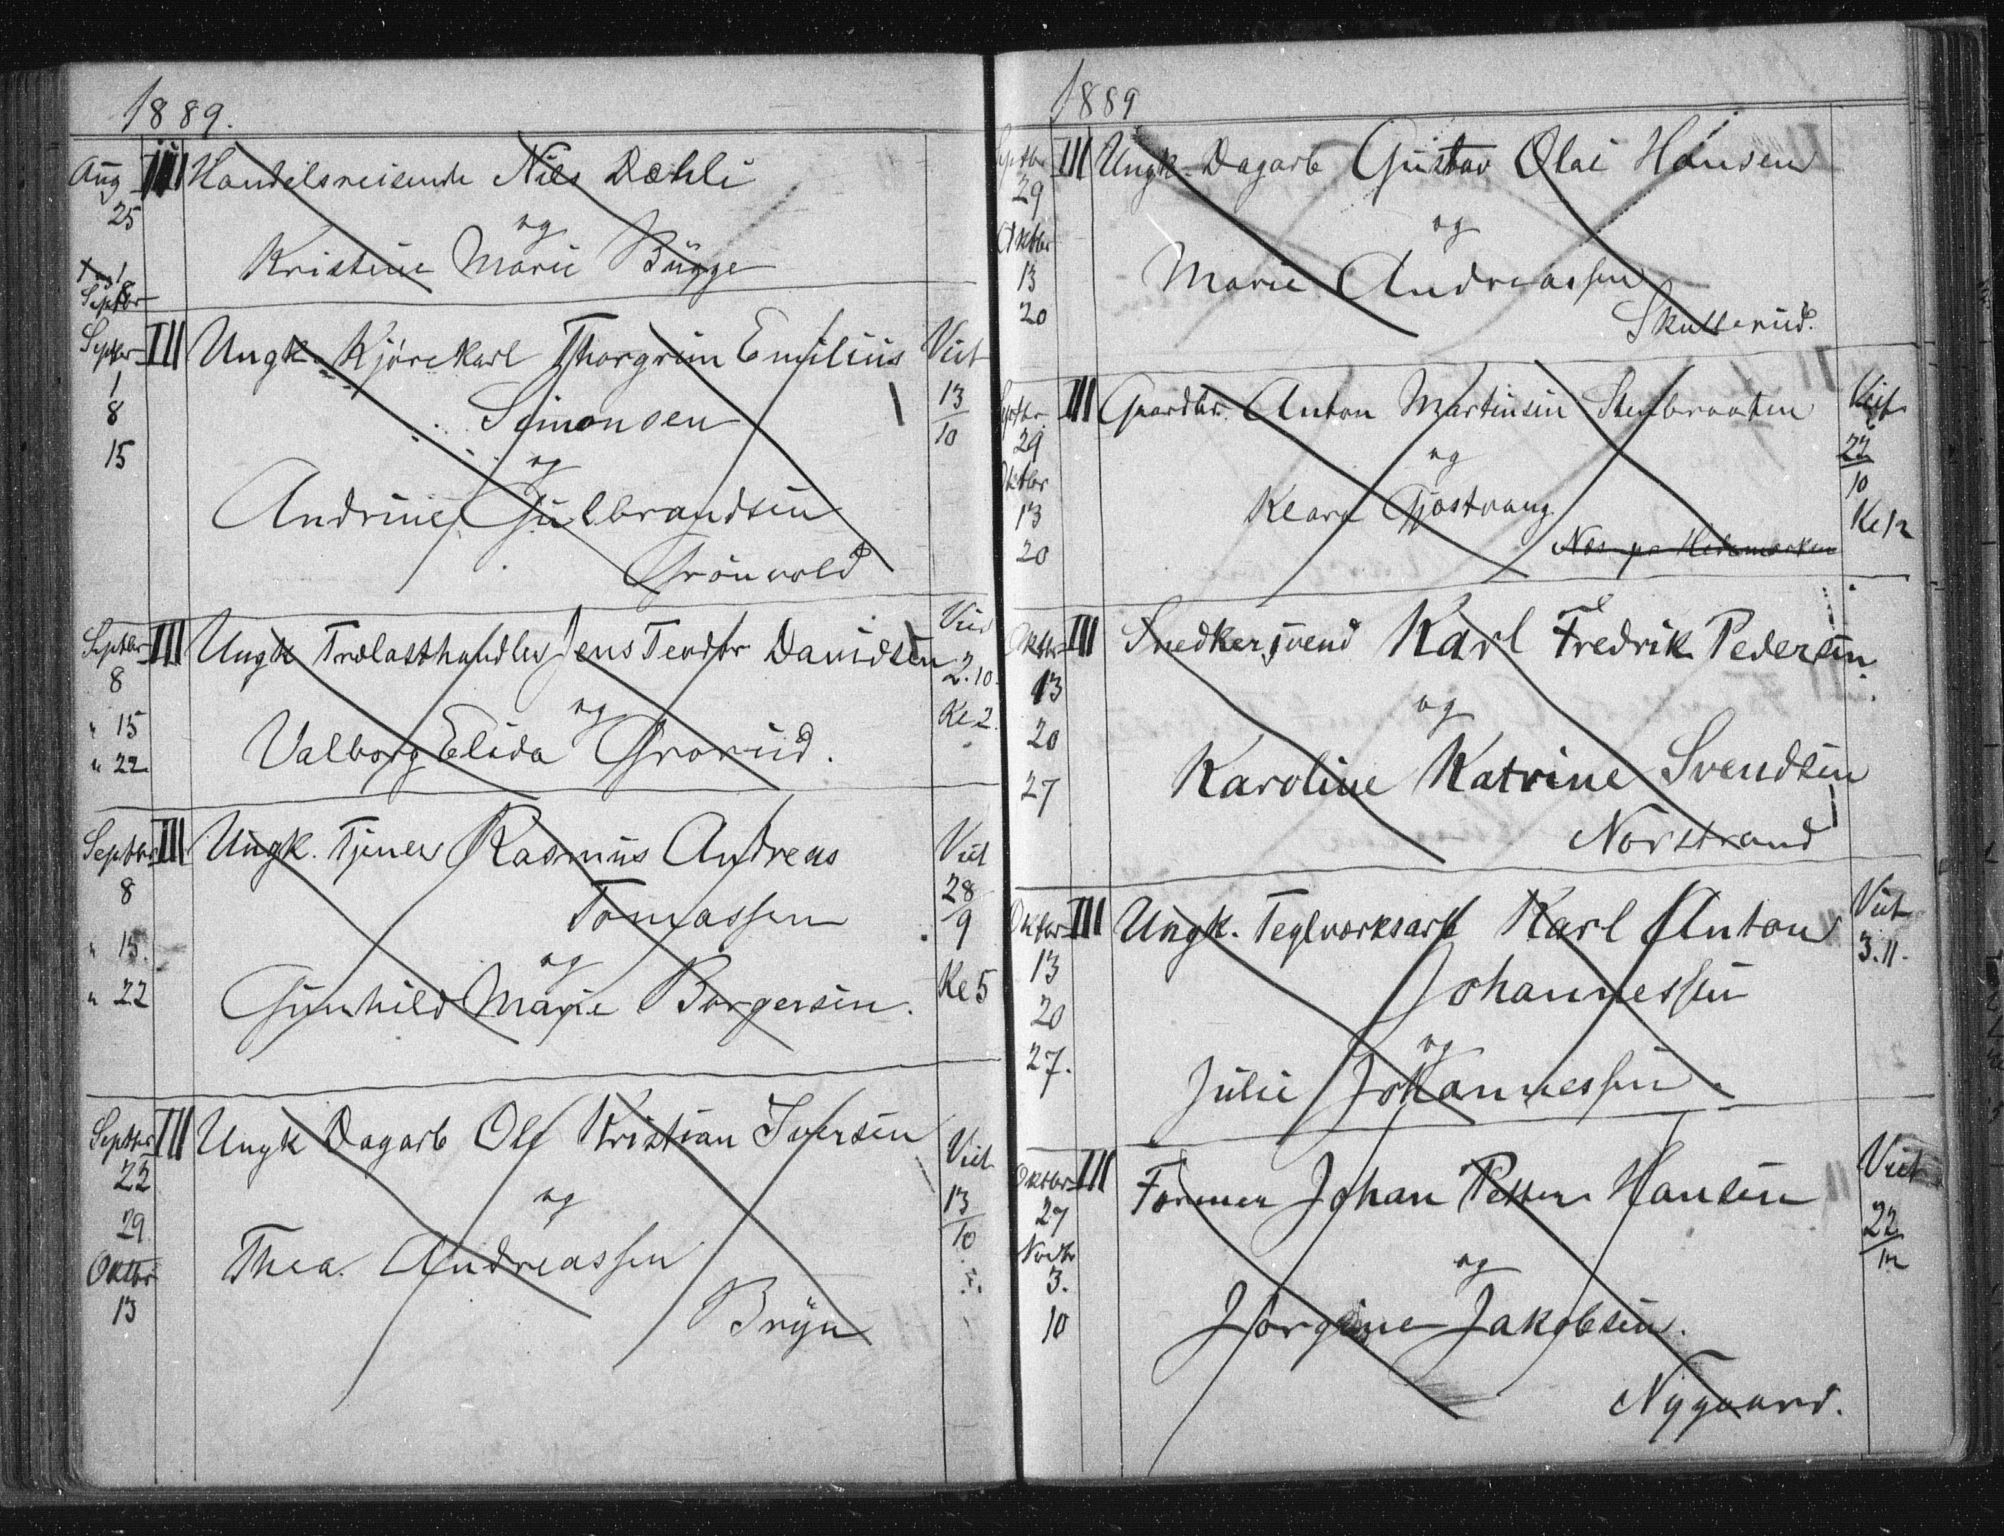 1889.
Aug III Handelsreisende Nils Dæhli
25
og
Kristine Marie Bügge
1 og 8
Septbr
Septbr III Ungk. Kjörekarl Thorgrim Emilius Viet
1 13
8 Simonsen 10
15 og
Andrine Gulbrandsen
Grönvold
Septbr III Ungk Trælasthandler Jens Teodor Davidsen Vied
8 2.10.
" 15 og Ke 2
" 22 Valborg Elida Grorud.
Septbr III Ungk. Tjener Rasmus Andreas Viet
8 Tomassen 28
9
" 15. og
" 22 Gunhild Marie Borgersen. Ke 5
Septbr III Ungk Dagarb Ole Kristian Iversen Viet
22 og 13
29 10
Thea Andreassen
Oktbr
13 Bryn
1889
Septbr III Ungk. Dagarb Gustav Olai Hansen
29 og
Oktbr
13 Marie Andreassen
20 Skullerud.
Septbr. III Gaardbr. Anton Martinsen Stenbraaten Viet
29 og 22
Oktbr 10
13 Klara Gjøstvang Ke 12
20 Næs pr Hedemarken
Oktbr III Snedkersvend Karl Fredrik Pedersen
13
20 og
27 Karoline Katrine Svendsen
Norstrand
Oktbr III Ungk. Teglværksarb Karl Anton Viet
13 Johannessen 3.11.
20 og
27. Julie Johannessen.
Oktbr III Former Johan Petter Hansen Viet
27 22
Novbr og 12
3.
10 Jørgine Jakobsen.
Nygaard.